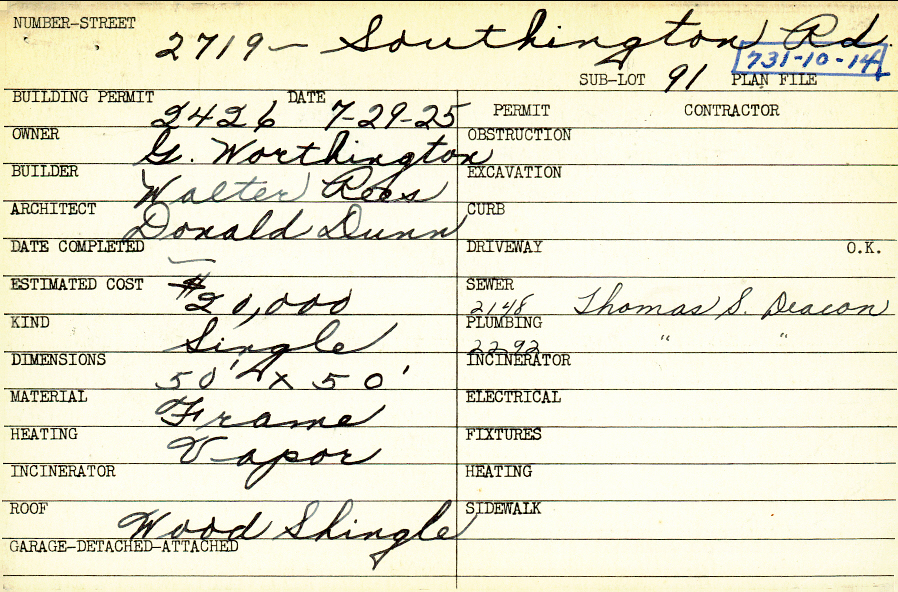 NUMBER-STREET
2719 - Southington Rd.
731-10-14
SUB-LOT 91 PLAN FILE
BUILDING PERMIT 2426 DATE 7-29-25
PERMIT CONTRACTOR
OWNER G. Worthington
OBSTRUCTION
BUILDER Walter Rees
EXCAVATION
ARCHITECT Donald Dunn
CURB
DATE COMPLETED —
DRIVEWAY O.K.
ESTIMATED COST $20,000
SEWER 2148 Thomas S. Deacon
KIND Single
PLUMBING 2292 " "
DIMENSIONS 50' x 50'
INCINERATOR
MATERIAL Frame
ELECTRICAL
HEATING Vapor
FIXTURES
INCINERATOR
HEATING
ROOF Wood Shingle
SIDEWALK
GARAGE-DETACHED-ATTACHED